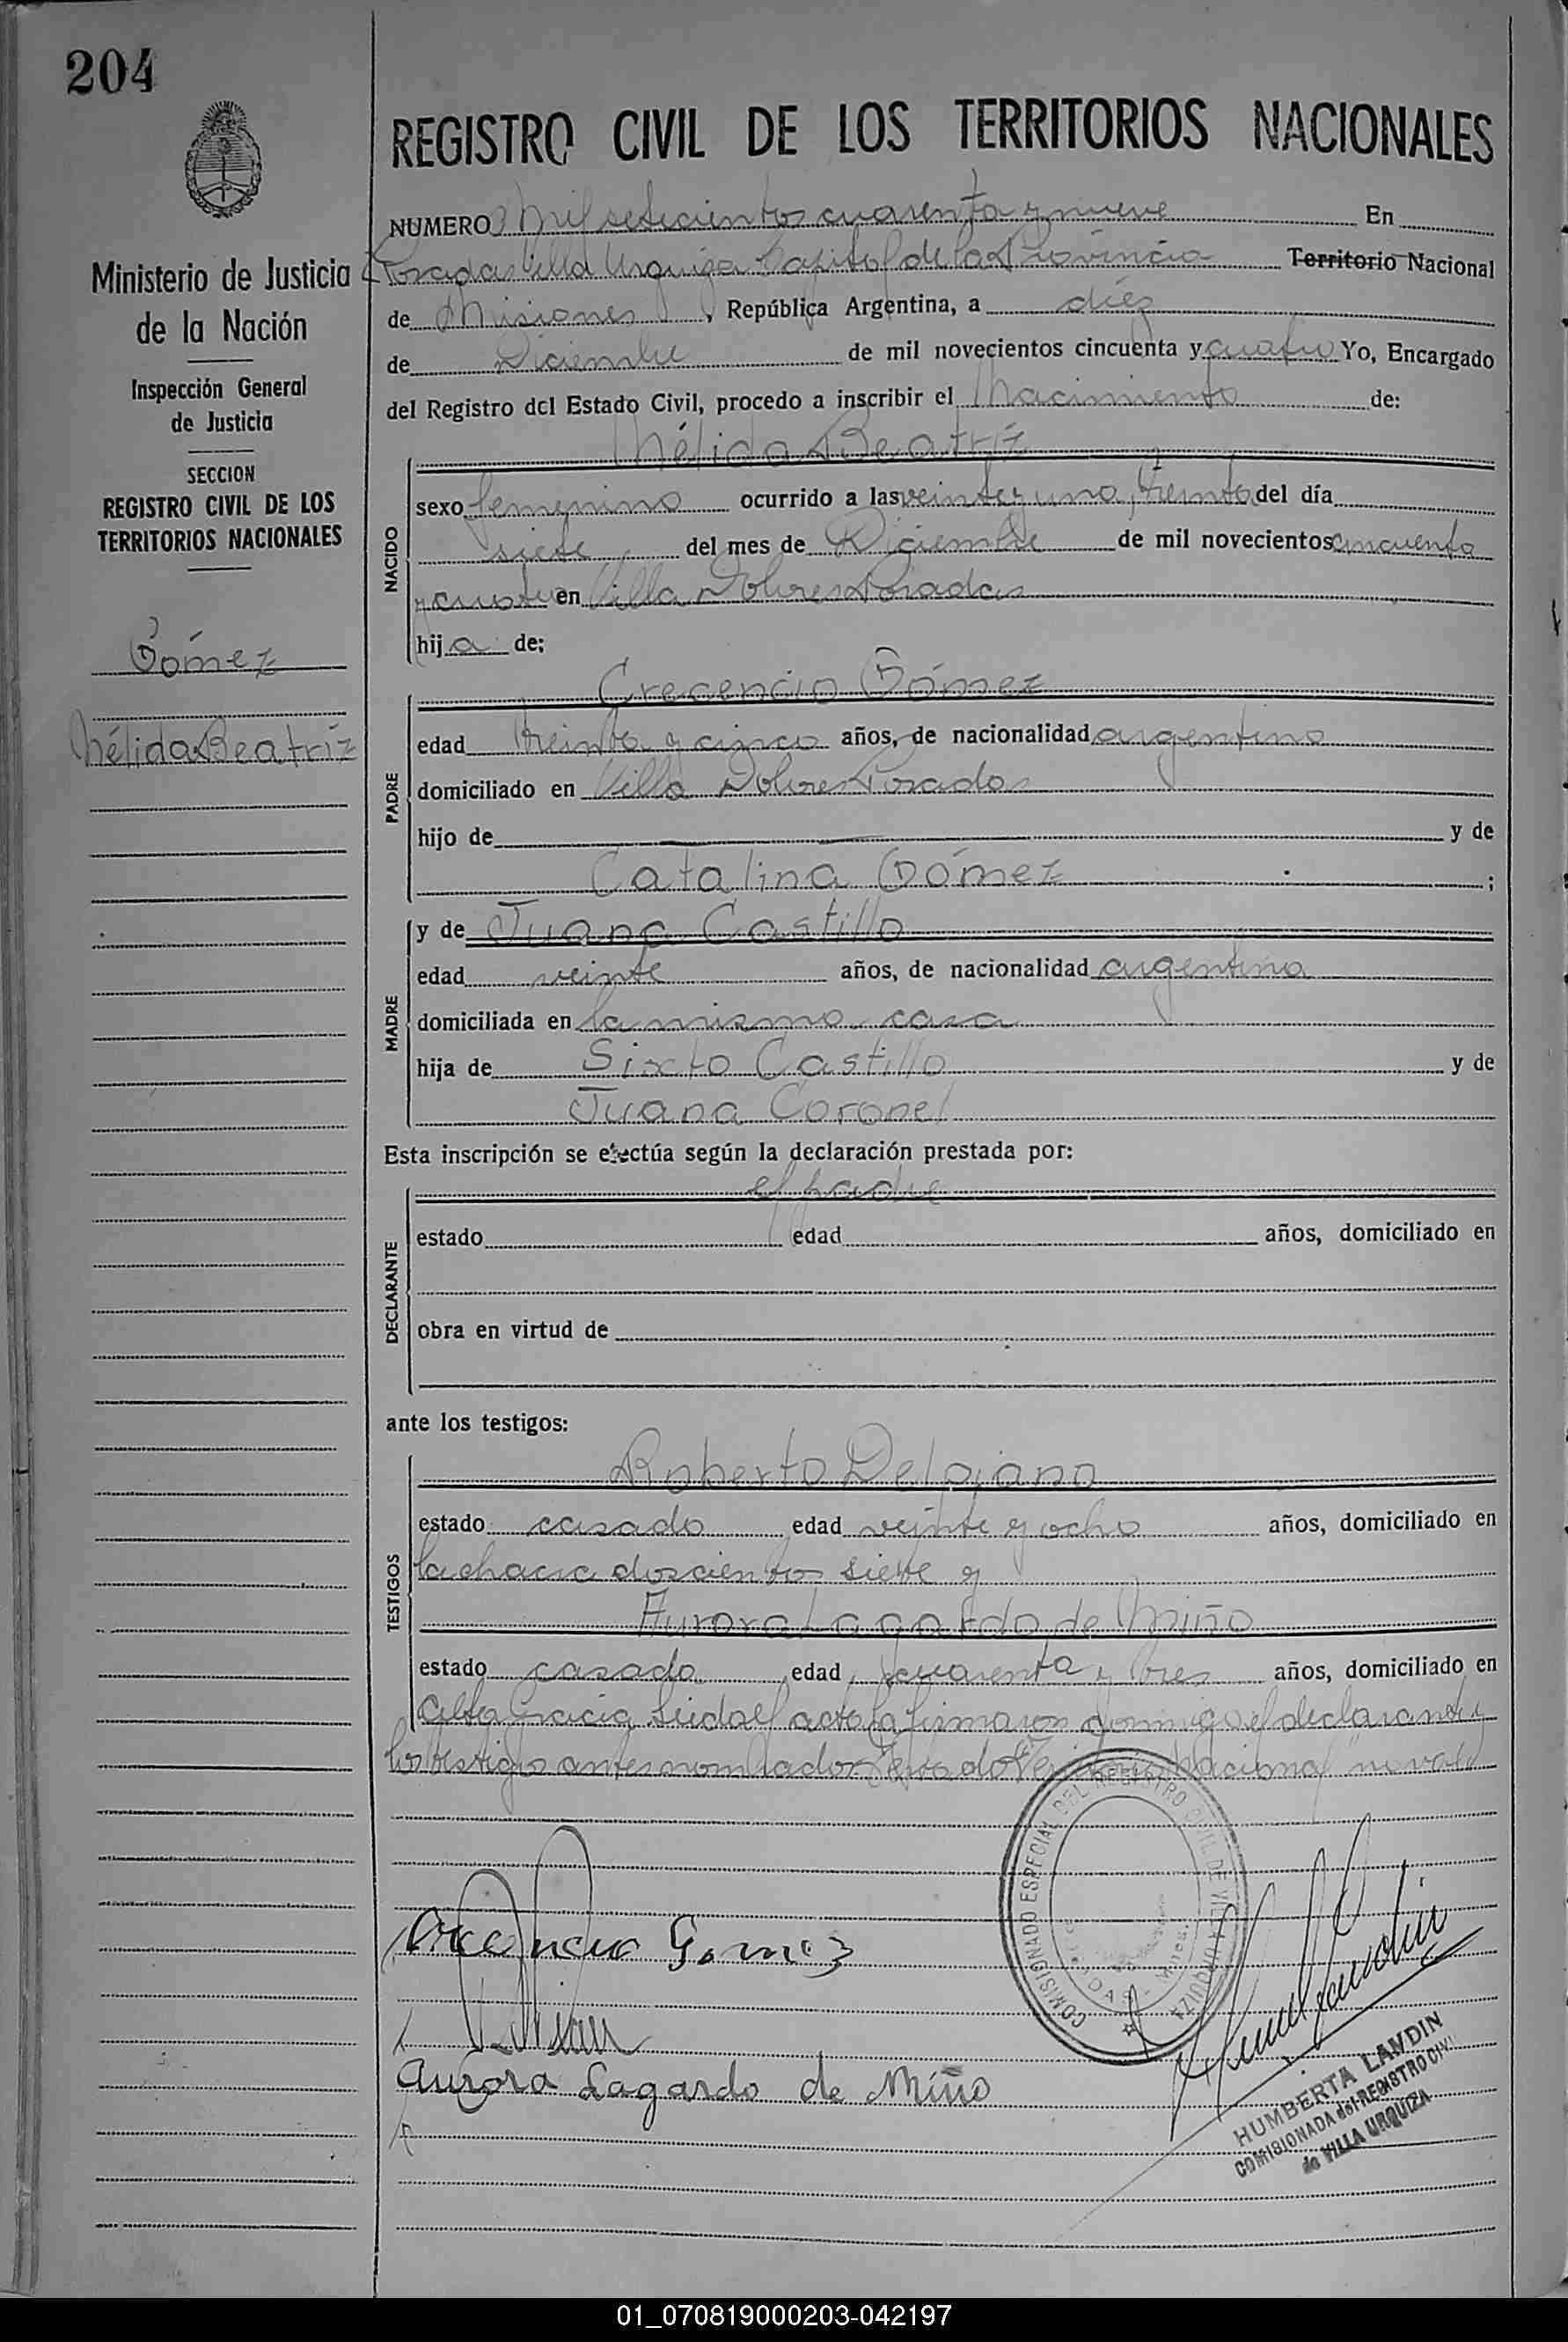 204
REGISTRO CIVIL DE LOS TERRITORIOS NACIONALES
Ministerio de Justicia
de la Nación
Inspección General
de Justicia
SECCION
REGISTRO CIVIL DE LOS
TERRITORIOS NACIONALES
Gómez
Nélida Beatríz
NUMERO Mil setecientos cuarenta y nueve En
Posadas Villa Urquiza Capital de la Provincia Territorio Nacional
de Misiones, República Argentina, a diez
de Diciembre de mil novecientos cincuenta y cuatro Yo, Encargado
del Registro del Estado Civil, procedo a inscribir el Nacimiento de:
Nélida Beatríz
NACIDO
sexo femenino ocurrido a las veinte y uno, treinta del día
siete del mes de Diciembre de mil novecientos cincuenta
y cuatro en Villa Dolores Posadas
hija de:
PADRE
Crecencio Gómez
edad treinta y cinco años, de nacionalidad argentino
domiciliado en Villa Dolores Posadas
hijo de y de
Catalina Gómez ;
MADRE
y de Juana Castillo
edad veinte años, de nacionalidad argentina
domiciliada en la misma casa
hija de Sixto Castillo y de
Juana Coronel
Esta inscripción se efectúa según la declaración prestada por:
DECLARANTE
el padre
estado edad años, domiciliado en
obra en virtud de
ante los testigos:
TESTIGOS
Roberto
estado casado edad veinte y ocho años, domiciliado en
la chacra doscientos siete y
Aurora Lagardo de Miño
estado casada edad cuarenta y tres años, domiciliado en
Alta Gracia Leída el acta la firmaron conmigo el declarante y
los testigos antes nombrados Testado Territorio Nacional "no vale"
Gomez
Aurora Lagardo de Miño
COMISIONADO ESPECIAL DEL REGISTRO CIVIL DE VILLA URQUIZA
HUMBERTA LANDIN
COMISIONADA del REGISTRO CIVIL
de VILLA URQUIZA
01_070819000203-042197